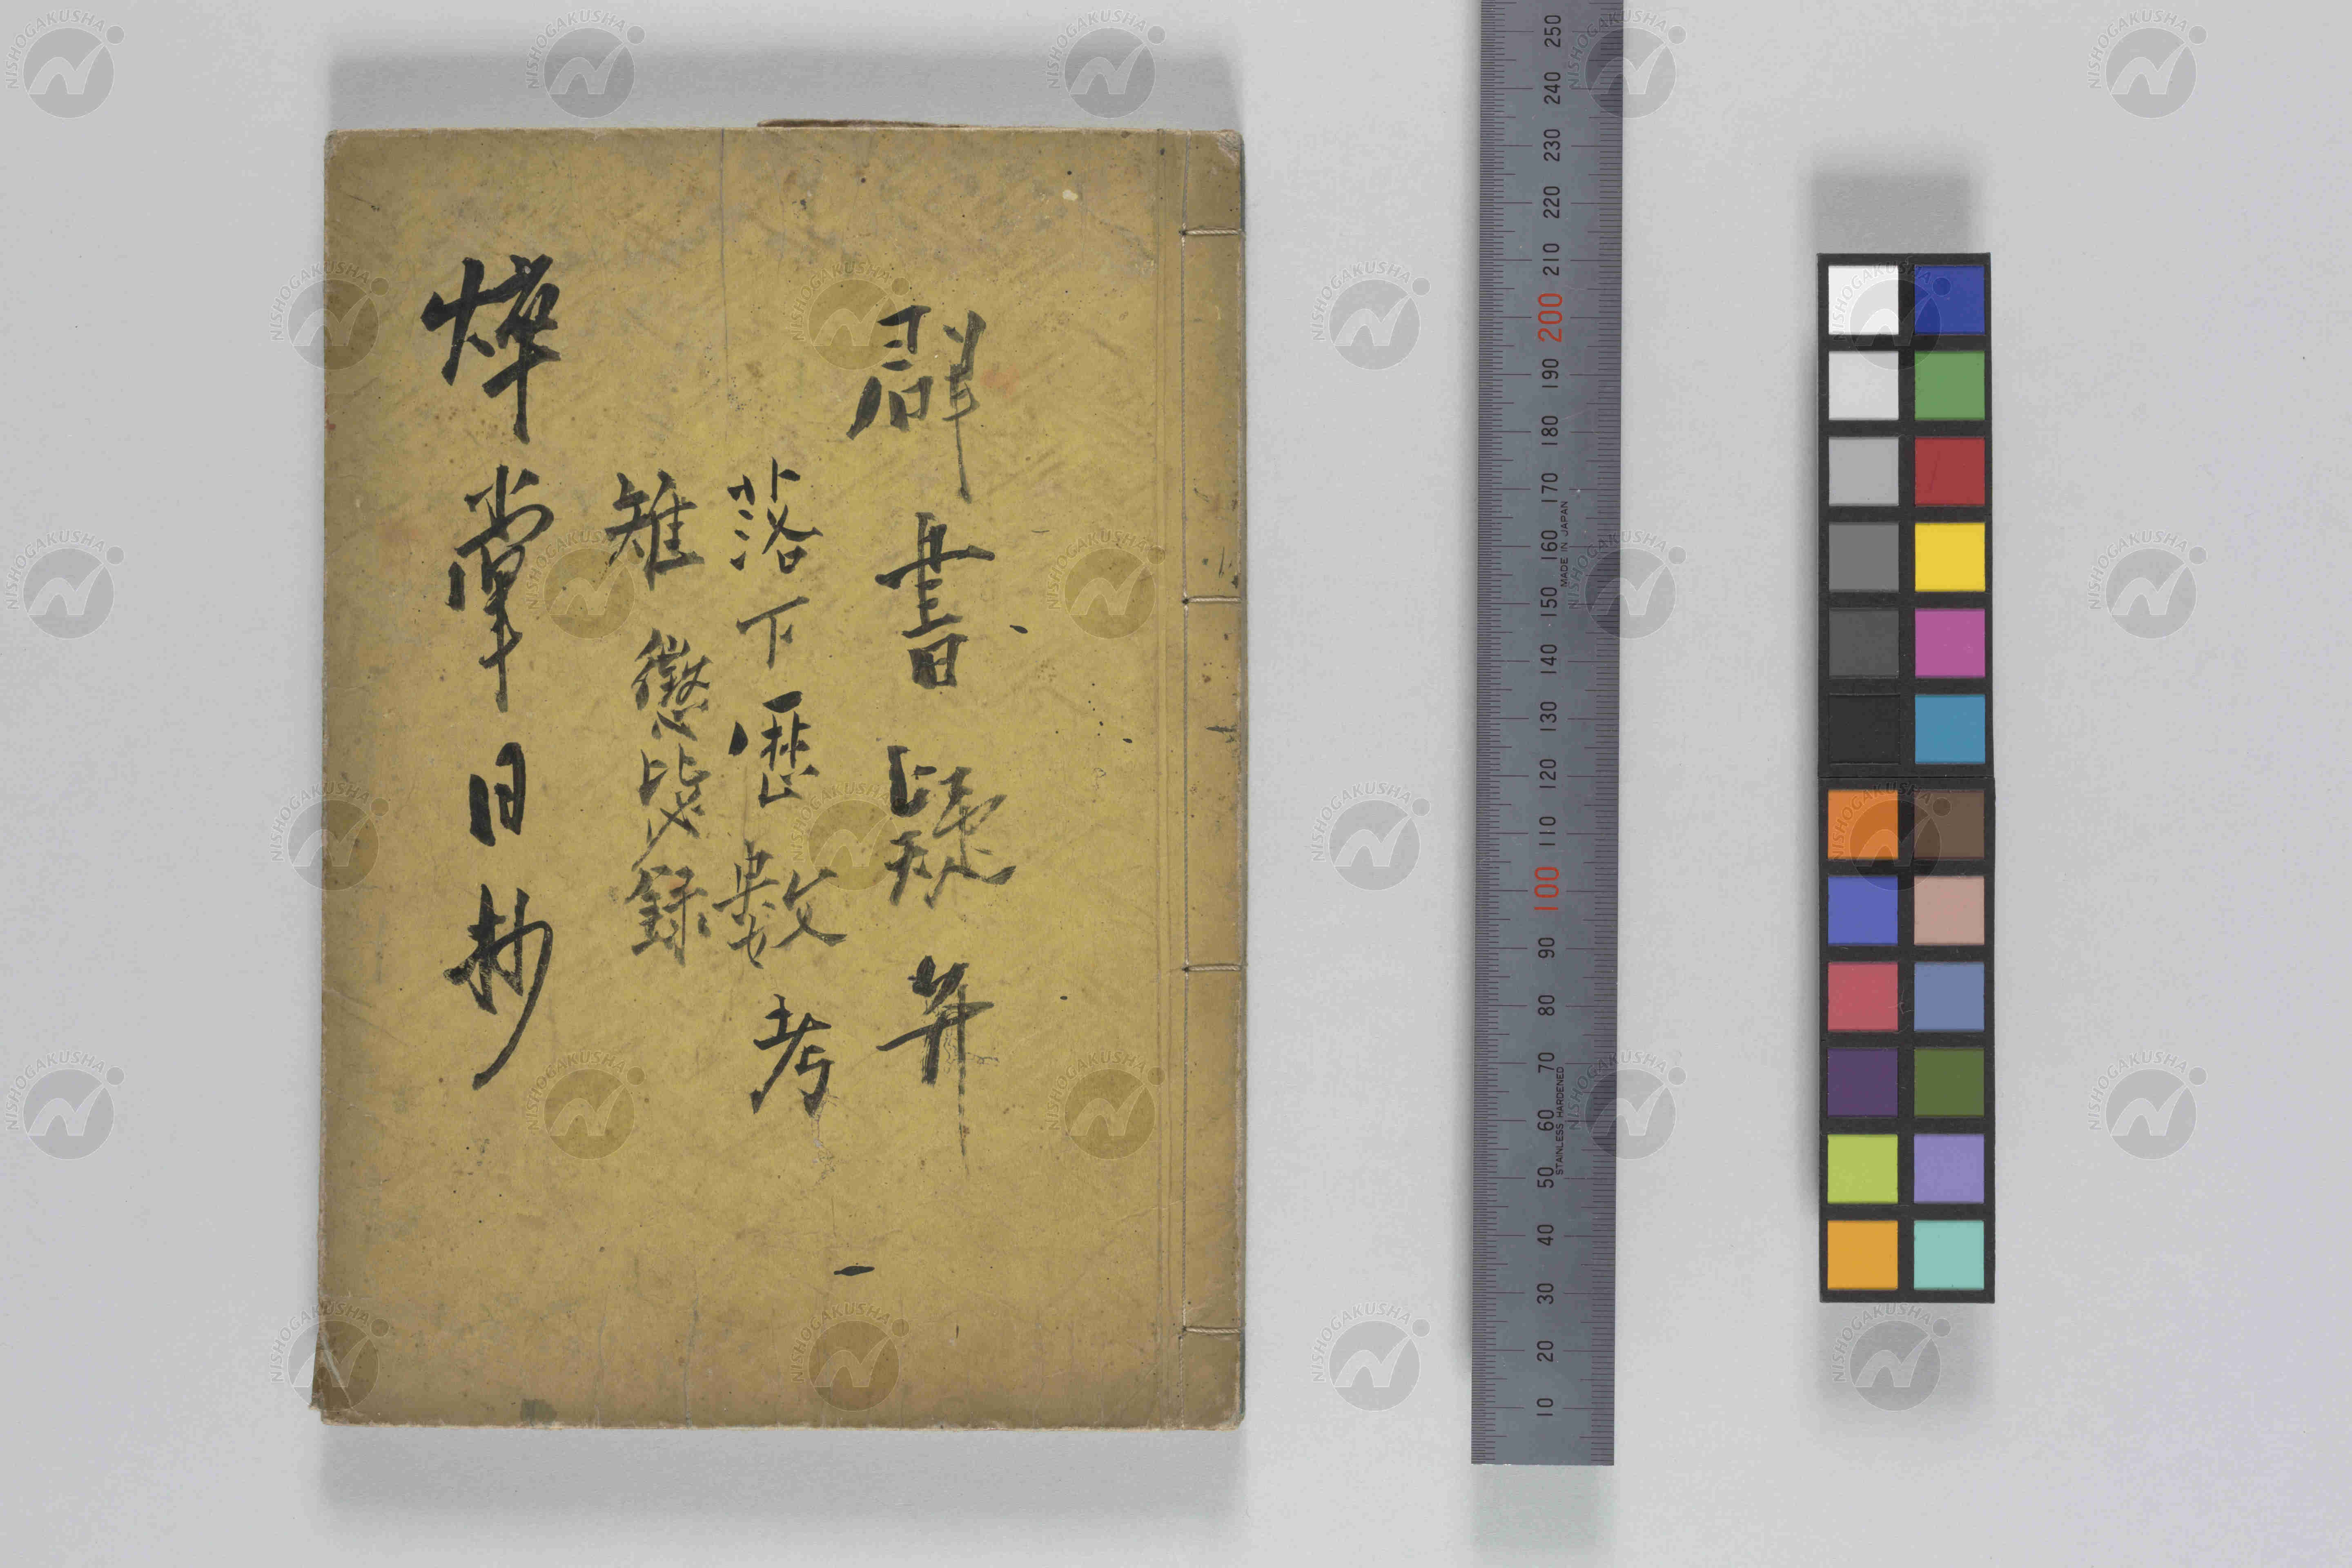 群書疑弁
落下歷數考
雉 懲毖録
焠掌日抄
250 240 230 220 210 200 190 180 170 160 150 140 130 120 110 100 90 80 70 60 50 40 30 20 10
MADE IN JAPAN
STAINLESS HARDENED
NISHOGAKUSHA